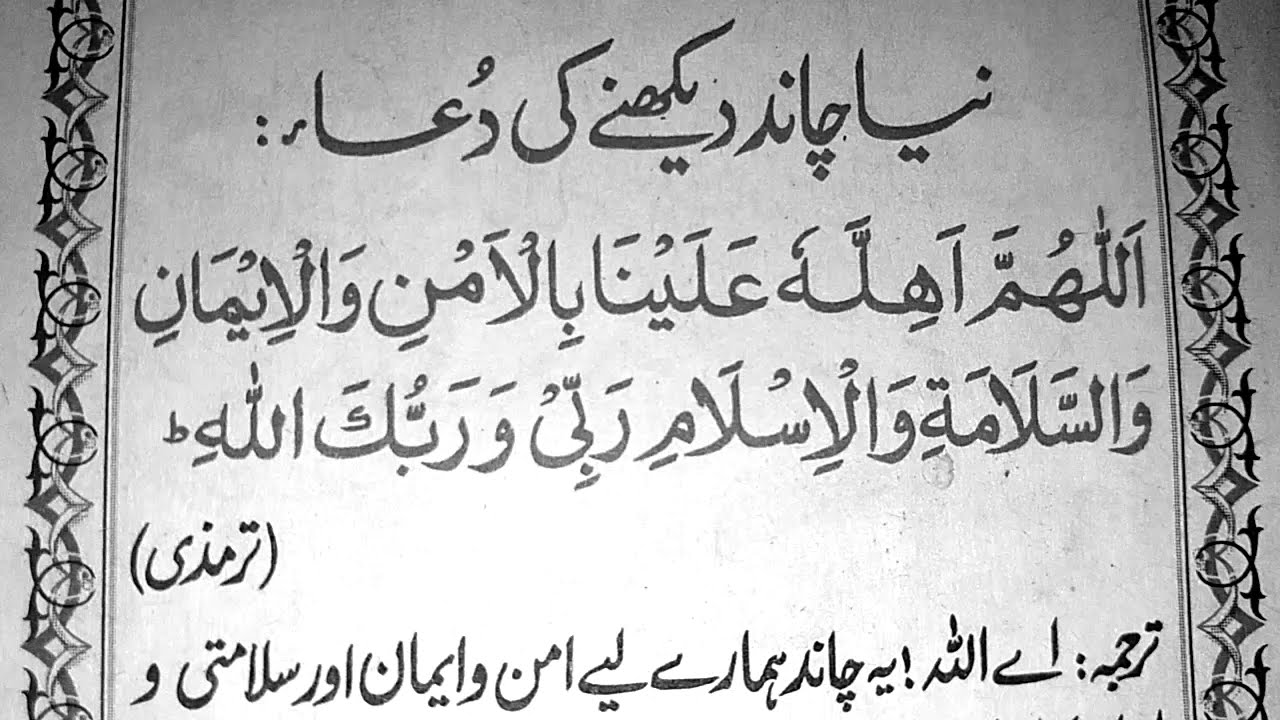 نیا چاند دیکھنے کی دُعاء:
اَللّٰهُمَّ اَهِلَّهٗ عَلَيْنَا بِالْاَمْنِ وَالْاِيْمَانِ
وَالسَّلَامَةِ وَالْاِسْلَامِ رَبِّیْ وَ رَبُّكَ اللّٰهِ ؕ
(ترمذی)
ترجمہ: اے اللہ! یہ چاند ہمارے لیے امن و ایمان اور سلامتی و